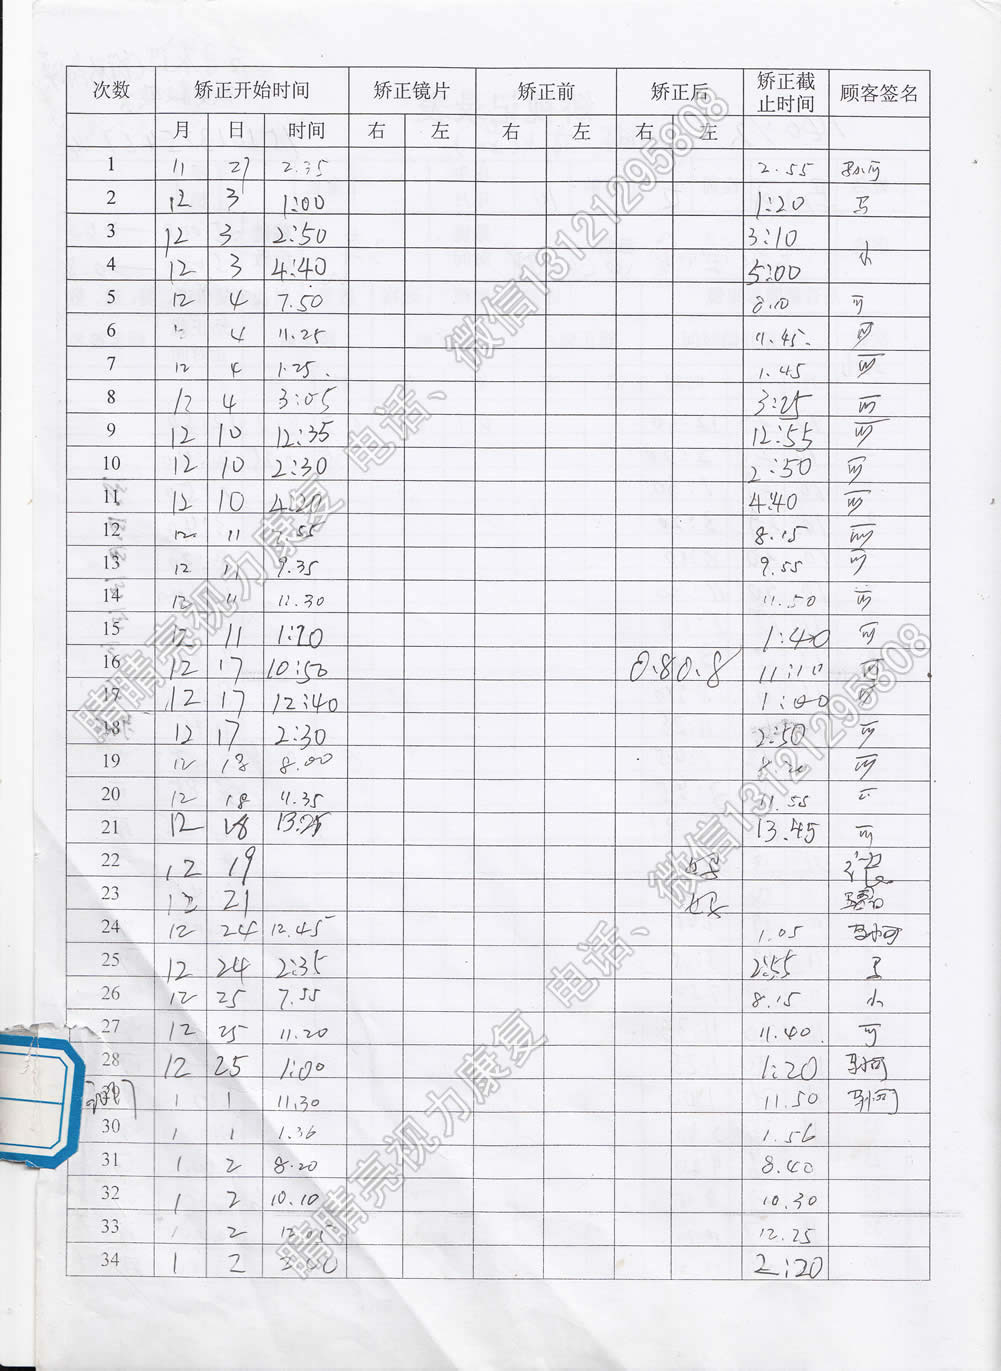 次数 矫正开始时间 矫正镜片 矫正前 矫正后 矫正截止时间 顾客签名
月 日 时间 右 左 右 左 右 左
1 11 27 2.35 2.55
2 12 3 1:00 1:20 马
3 12 3 2:50 3:10
4 12 3 4:40 5:00 小
5 12 4 7.50 8.10 可
6 4 11.25 11.45. 可
7 12 4 1.25. 1.45 可
8 12 4 3:05 3:25 可
9 12 10 12:35 12:55 可
10 12 10 2:30 2:50 可
11 12 10 4:20 4:40 可
12 12 11 7.55 8.15 可
13 12 11 9.35 9.55 可
14 12 11 11.30 11.50 可
15 12 11 1:20 1:40 可
16 12 17 10:50 0.8 0.8 11:10 可
17 12 17 12:40 1:00 可
18 12 17 2:30 2:50 可
19 12 18 8.00 8.20 可
20 12 18 11.35 11.55
21 12 18 13.25 13.45 可
22 12 19 好
23 12 21 好
24 12 24 12.45 1.05 马小可
25 12 24 2:35 2:55
26 12 25 7.55 8.15 小
27 12 25 11.20 11.40. 可
28 12 25 1:00 1:20 马小可
29 1 1 11.30 11.50 马小可
30 1 1 1.36 1.56
31 1 2 8.20 8.40
32 1 2 10.10 10.30
33 1 2 12.05 12.25
34 1 2 2:00 2:20
睛晴亮视力康复 电话、微信13121295808
睛晴亮视力康复 电话、微信13121295808